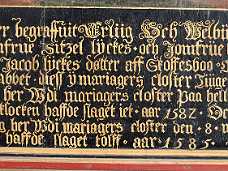 er begraffuit Erliig Och Welbi
mfrue Sitzel lyckes och Jomfrue
Jacob lyckes døtter aff Skoffesboo
abber diess y mariagers closter Tiiige
ber Wdi mariagers closter Paa hell
klocken haffde slaget iet aar 1582 Oc
g ber wdi mariagers closter den 8 m
haffde slaget tolff aar 1585